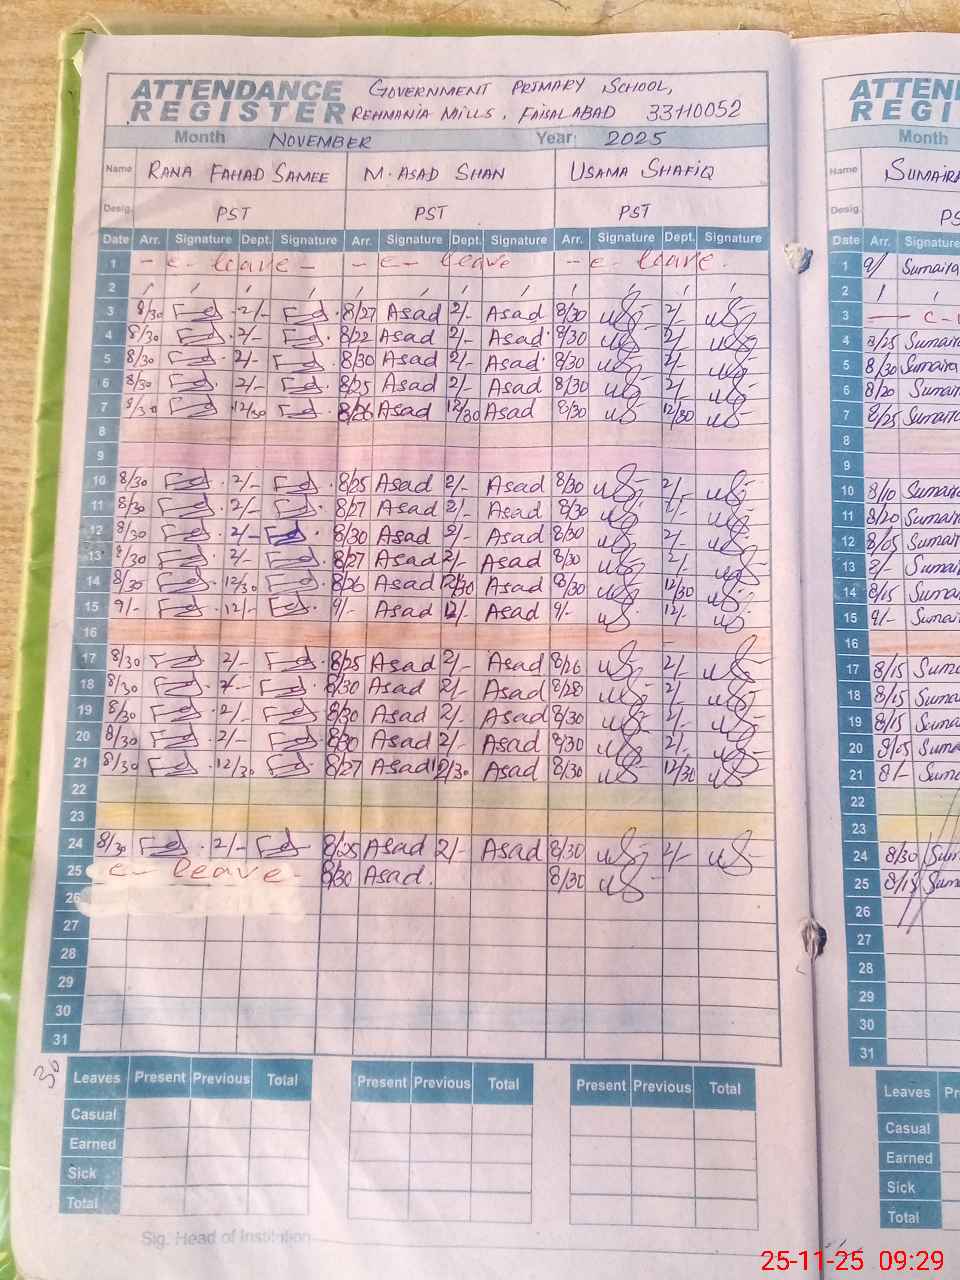 ATTENDANCE REGISTER GOVERNMENT PRIMARY SCHOOL,
REHMANIA MILLS, FAISALABAD 33110052
Month NOVEMBER Year: 2025
Name RANA FAHAD SAMEE M. ASAD SHAN USAMA SHAFIQ
Desig. PST PST PST
Date Arr. Signature Dept. Signature Arr. Signature Dept. Signature Arr. Signature Dept. Signature
1 - c - leave - - c - leave - c leave.
2
3 8/30 2/- 8/27 Asad 2/- Asad 8/30 2/-
4 8/30 2/- 8/22 Asad 2/- Asad 8/30 2/-
5 8/30 2/- 8/30 Asad 2/- Asad 8/30 2/-
6 8/30 2/- 8/25 Asad 2/- Asad 8/30 2/-
7 8/30 12/30 8/26 Asad 12/30 Asad 8/30 12/30
8
9
10 8/30 2/- 8/25 Asad 2/- Asad 8/30 2/-
11 8/30 2/- 8/27 Asad 2/- Asad 8/30 2/-
12 8/30 2/- 8/30 Asad 2/- Asad 8/30 2/-
13 8/30 2/- 8/27 Asad 2/- Asad 8/30 2/-
14 8/30 12/30 8/26 Asad 12/30 Asad 8/30 12/30
15 9/- 12/- 9/- Asad 12/- Asad 9/- 12/-
16
17 8/30 2/- 8/25 Asad 2/- Asad 8/26 2/-
18 8/30 2/- 8/30 Asad 2/- Asad 8/28 2/-
19 8/30 2/- 8/30 Asad 2/- Asad 8/30 2/-
20 8/30 2/- 8/30 Asad 2/- Asad 8/30 2/-
21 8/30 12/30 8/27 Asad 12/30 Asad 8/30 12/30
22
23
24 8/30 2/- 8/25 Asad 2/- Asad 8/30 2/-
25 c - leave - 8/30 Asad. 8/30
26
27
28
29
30
31
30
Leaves Present Previous Total Present Previous Total Present Previous Total
Casual
Earned
Sick
Total
Sig. Head of Institution
Month
Name SUMAIRA
Desig.
Date Arr. Signature
1 9/ Sumaira
2
3 c
4 8/25 Sumaira
5 8/30 Sumaira
6 8/20 Sumaira
7 8/25 Sumaira
8
9
10 8/10 Sumaira
11 8/20 Sumaira
12 8/05 Sumai
13 8/- Sumai
14 8/15 Sumai
15 9/- Sumai
16
17 8/15 Suma
18 8/15 Suma
19 8/15 Suma
20 8/05 Suma
21 8/- Suma
22
23
24 8/30 Sum
25 8/15 Sum
26
27
28
29
30
31
Leaves
Casual
Earned
Sick
Total
25-11-25 09:29